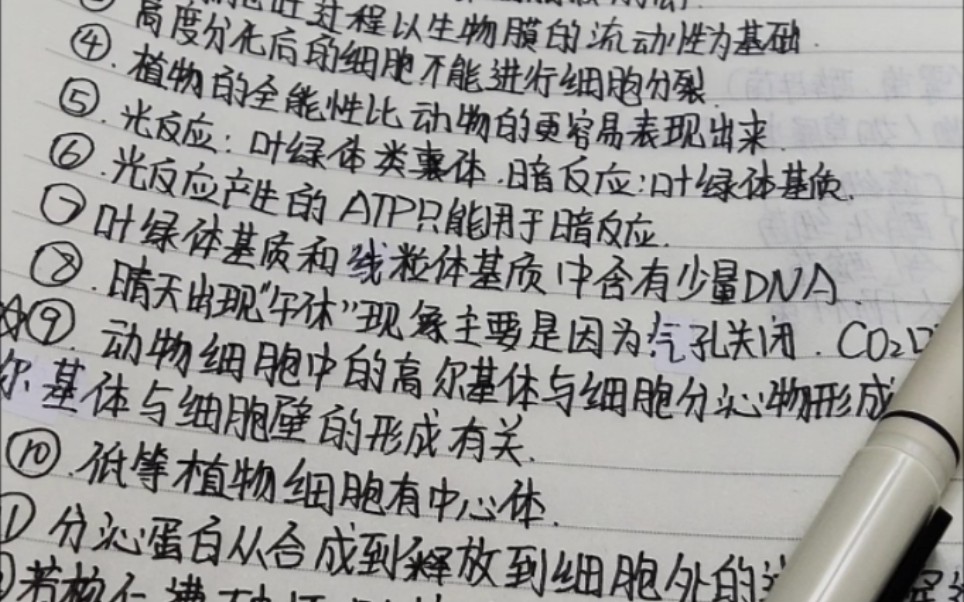 过程以生物膜的流动性为基础.
④.高度分化后的细胞不能进行细胞分裂.
⑤.植物的全能性比动物的更容易表现出来.
⑥.光反应:叶绿体类囊体.暗反应:叶绿体基质.
⑦.光反应产生的ATP只能用于暗反应.
⑧.叶绿体基质和线粒体基质中含有少量DNA.
☆⑨.晴天出现"午休"现象主要是因为气孔关闭.CO₂
动物细胞中的高尔基体与细胞分泌物形成
尔基体与细胞壁的形成有关.
⑩.低等植物细胞有中心体.
分泌蛋白从合成到释放到细胞外的
若核仁遭